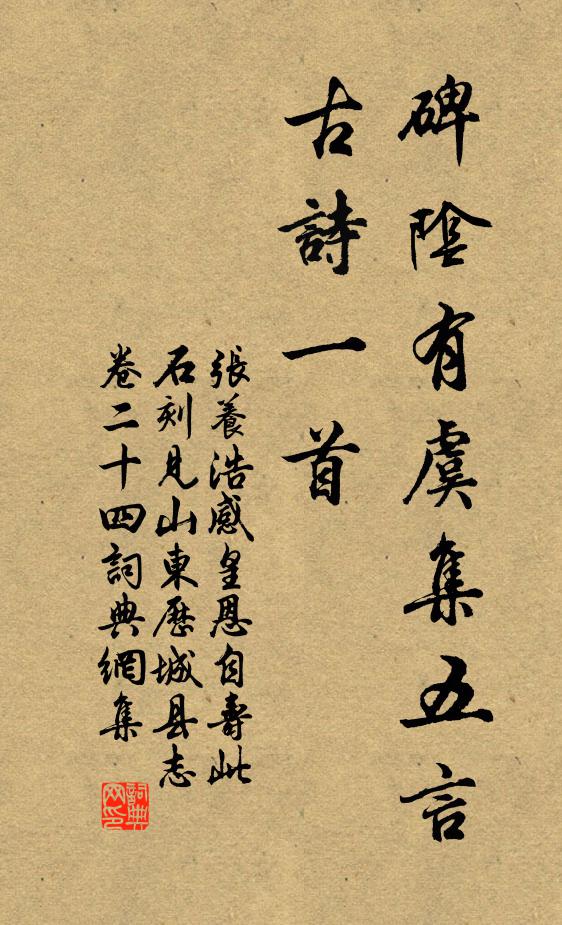 碑陰有虞集五言
古詩一首
張養浩感皇恩自壽此
石刻見山東歷城县志
卷二十四詞典網集
詞典
网印